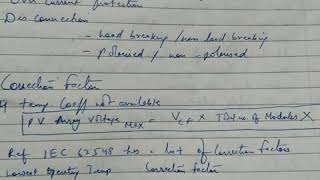 Over current protection
Dis connection
- Load breaking / non load breaking
- polarised / non-polarised
Correction Factor
If temp Coeff not available
PV Array Voltage MAX = V x Total no. of Modules X
Ref IEC 62548 has list of Correction factors
Lowest Operating Temp Correction factor